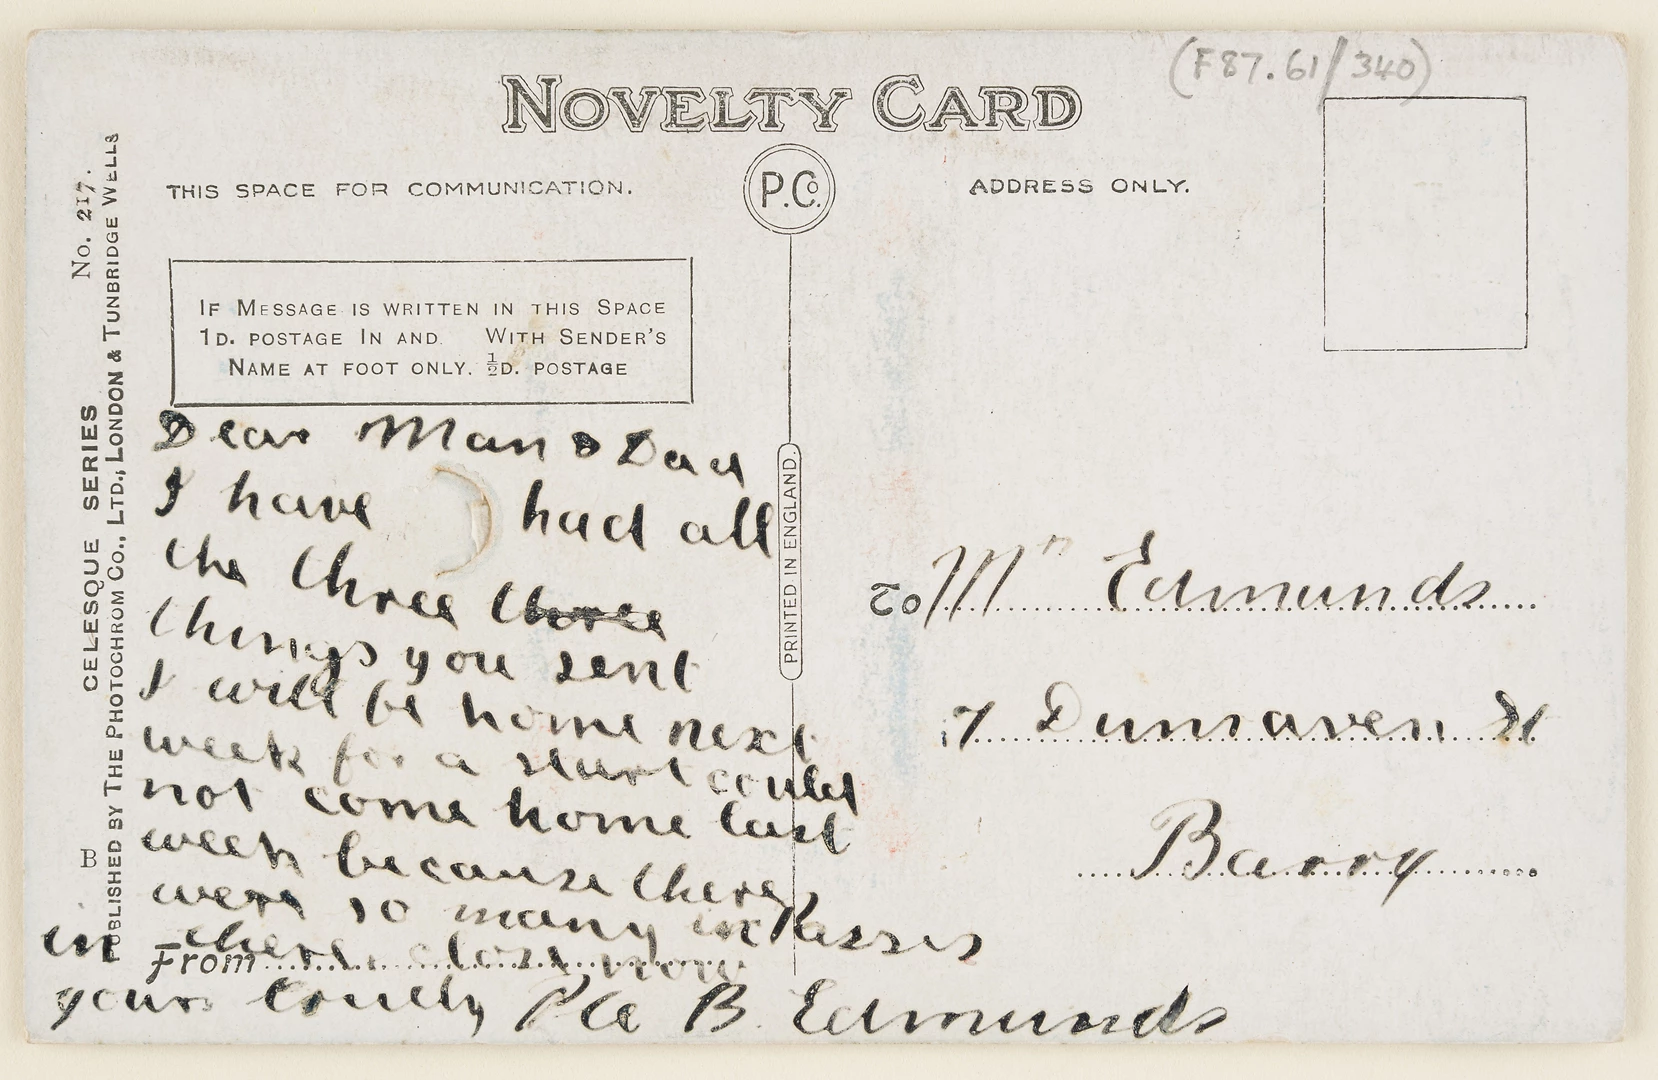 (F87.61/340)
NOVELTY CARD
P.Co.
THIS SPACE FOR COMMUNICATION.
ADDRESS ONLY.
IF MESSAGE IS WRITTEN IN THIS SPACE
1D. POSTAGE IN AND. WITH SENDER'S
NAME AT FOOT ONLY. ½D. POSTAGE
CELESQUE SERIES No. 217.
B PUBLISHED BY THE PHOTOCHROM CO., LTD., LONDON & TUNBRIDGE WELLS
PRINTED IN ENGLAND.
Dear Mam & Dad
I have had all
the three three
things you sent
I will be home next
week for a start could
not come home last
week because there
were so many in Passes
in there close now
From
yours truely Pte B. Edmunds
To Mrs Edmunds
7 Dunraven St
Barry